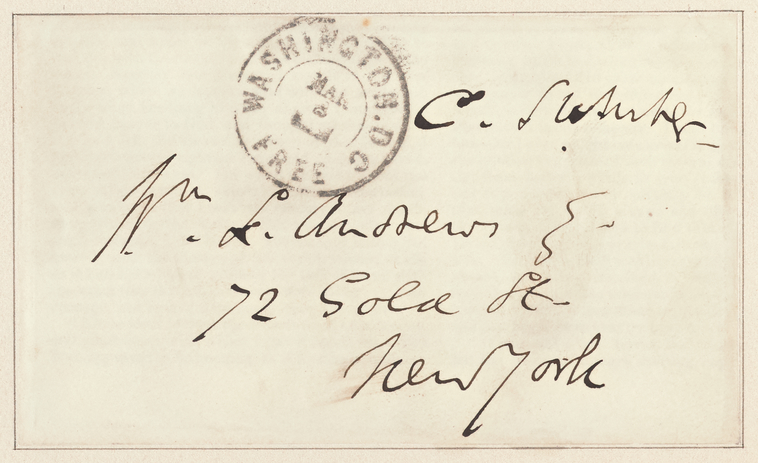 WASHINGTON. D C
MAR
FREE
C. Sumner
Wm. L. Andrews
72 Gold St-
New York